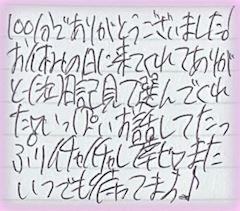 100分でありがとうございました♪
お休みの日に来てくれてありがと(泣)日記見て選んでくれ
たの いっぱいお話してたっ
ぷりイチャイチャしてまた
いつでも待ってまう♪